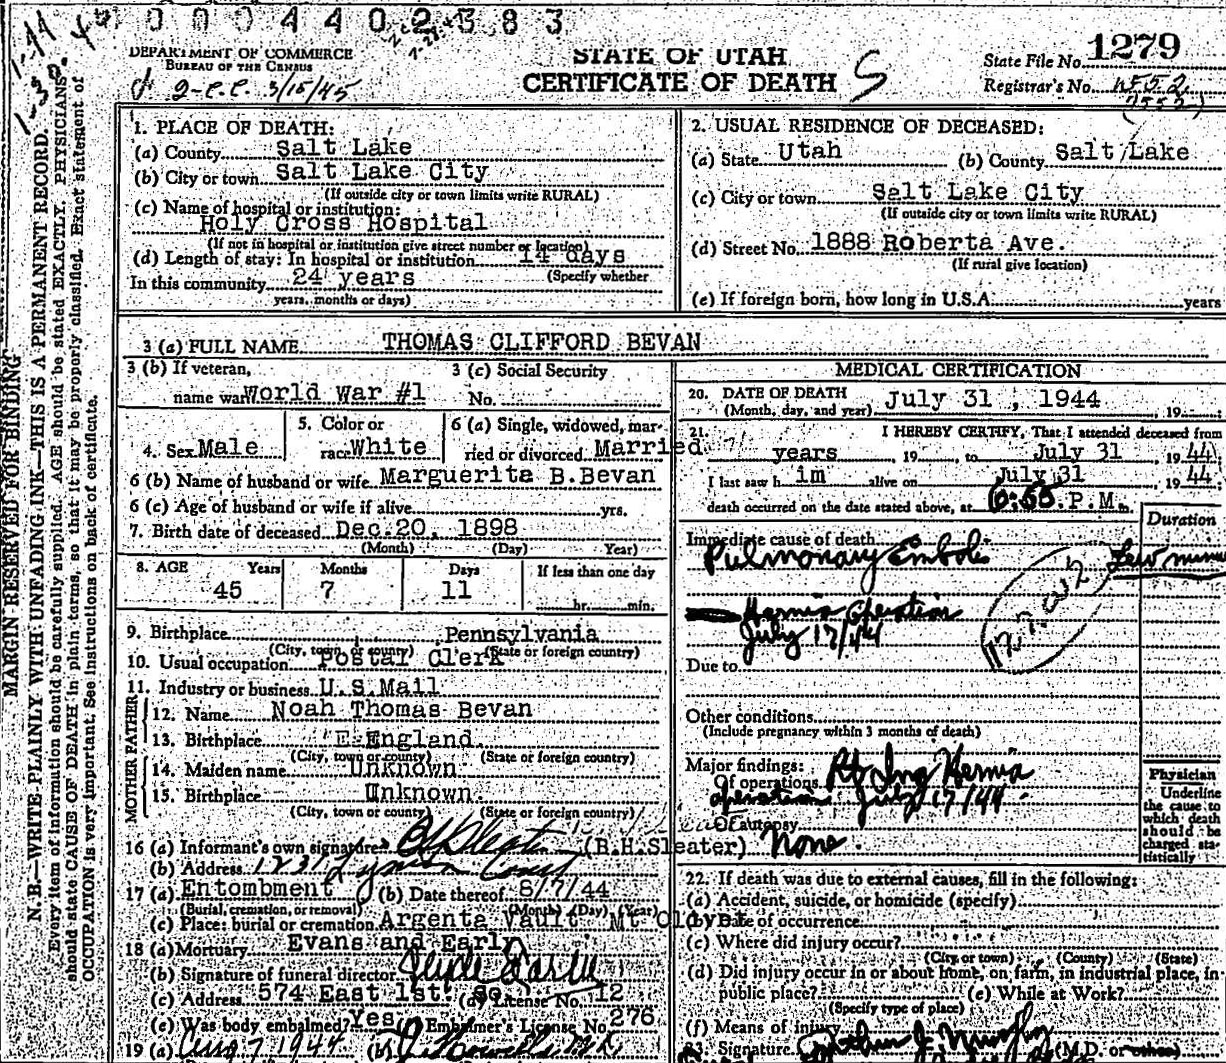 0004402383
DEPARTMENT OF COMMERCE
BUREAU OF THE CENSUS
2-C.C. 3/15/45
STATE OF UTAH
CERTIFICATE OF DEATH
S
State File No. 1279
Registrar's No.
MARGIN RESERVED FOR BINDING
N. B.—WRITE PLAINLY WITH UNFADING INK—THIS IS A PERMANENT RECORD.
Every item of information should be carefully supplied. AGE should be stated EXACTLY. PHYSICIANS
should state CAUSE OF DEATH in plain terms, so that it may be properly classified. Exact statement of
OCCUPATION is very important. See instructions on back of certificate.
1. PLACE OF DEATH:
(a) County Salt Lake
(b) City or town Salt Lake City
(If outside city or town limits write RURAL)
(c) Name of hospital or institution:
Holy Cross Hospital
(If not in hospital or institution give street number or location)
(d) Length of stay: In hospital or institution 14 days
In this community 24 years (Specify whether
years, months or days)
2. USUAL RESIDENCE OF DECEASED:
(a) State Utah (b) County Salt Lake
(c) City or town Salt Lake City
(If outside city or town limits write RURAL)
(d) Street No. 1888 Roberta Ave.
(If rural give location)
(e) If foreign born, how long in U.S.A. years
3 (a) FULL NAME THOMAS CLIFFORD BEVAN
3 (b) If veteran,
name war World War #1
3 (c) Social Security
No.
4. Sex Male
5. Color or
race White
6 (a) Single, widowed, mar-
ried or divorced Married
6 (b) Name of husband or wife Marguerita B.Bevan
6 (c) Age of husband or wife if alive yrs.
7. Birth date of deceased Dec.20, 1898
(Month) (Day) Year)
8. AGE Years Months Days If less than one day
45 7 11 hr. min.
9. Birthplace Pennsylvania
(City, town, or county) (State or foreign country)
10. Usual occupation Postal Clerk
11. Industry or business U.S.Mail
FATHER
12. Name Noah Thomas Bevan
13. Birthplace England
(City, town or county) (State or foreign country)
MOTHER
14. Maiden name Unknown
15. Birthplace Unknown
(City, town or county) (State or foreign country)
16 (a) Informant's own signature (B.H.Sleater)
(b) Address 1231
17 (a) Entombment (b) Date thereof 8/7/44
(Burial, cremation, or removal) (Month) (Day) (Year)
(c) Place: burial or cremation Argenta Vault Mt Olivet
18 (a) Mortuary Evans and Early
(b) Signature of funeral director
(c) Address 574 East 1st. So (d) License No. 12
(e) Was body embalmed? Yes (f) Embalmer's License No. 276
19 (a) Aug 7 1944 (b)
MEDICAL CERTIFICATION
20. DATE OF DEATH
(Month, day, and year) July 31, 1944, 19
21. I HEREBY CERTIFY, That I attended deceased from
years, 19 , to July 31, 19 44.
I last saw h im alive on July 31 19 44.
death occurred on the date stated above, at 6:55 P.M.
Duration
Immediate cause of death
Pulmonary Emboli
Hernia Operation
July 17/44
Due to
Other conditions
(Include pregnancy within 3 months of death)
Major findings:
Of operations Rt Ing Hernia
operation July 17/44
Of autopsy None.
Physician
Underline
the cause to
which death
should be
charged sta-
tistically
22. If death was due to external causes, fill in the following:
(a) Accident, suicide, or homicide (specify)
(b) Date of occurrence
(c) Where did injury occur?
(City or town) (County) (State)
(d) Did injury occur in or about home, on farm, in industrial place, in
public place? (e) While at Work?
(Specify type of place)
(f) Means of injury
23. Signature (M.D. or other)